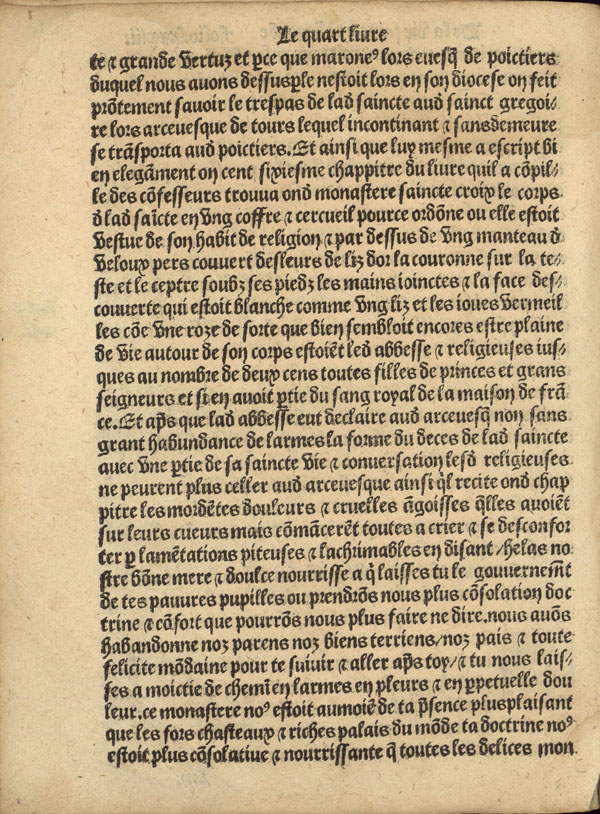 Le quart liure
te ⁊ grande vertuz et ꝑce que maroneꝰ lors euesq̃ de poictiers
duquel nous auons dessusple nestoit lors en son diocese on feit
prõtement sauoir le trespas de lad̃ saincte aud̃ sainct gregoi⸗
re lors arceuesque de tours lequel incontinant ⁊ sansdemeure
se trãsporta aud̃ poictiers. Et ainsi que luy mesme a escript bi
en elegãment on cent sixiesme chappitre du liure quil a cõpil⸗
le des cõfesseurs trouua ond̃ monastere saincte croix le corps
d̃ lad̃ saĩcte en vng coffre ⁊ cercueil pource ordõne ou elle estoit
vestue de son habit de religion ⁊ par dessus de vng manteau d̃
veloux pers couuert desleurs de liz dor la couronne sur la te⸗
ste et le ceptre soubz ses piedz les mains ioinctes ⁊ la face des⸗
couuerte qui estoit blanche comme vng liz et les ioues vermeil
les cõe vne roze de sorte que bien sembloit encores estre plaine
de vie autour de son corps estoiẽt led̃ abbesse ⁊ religieuses ius⸗
ques au nombre de deux cens toutes filles de princes et grans
seigneurs et si en auoit ꝑtie du sang royal de la maison de frã
ce. Et ap̃s que lad̃ abbesse eut declaire aud̃ arceuesq̃ non sans
grant habundance de larmes la forme du deces de lad̃ saincte
auec vne ꝑtie de sa saincte vie ⁊ conuersation lesd̃ religieuses
ne peurent plus celler aud̃ arceuesque ainsi q̃l recite ond̃ chap
pitre les mordẽtes douleurs ⁊ cruelles ãgoisses q̃lles auoiẽt
sur leurs cueurs mais cõmãcerẽt toutes a crier ⁊ se desconfor
ter ꝑ lamẽtations piteuses ⁊ lachrimables en disant/helas no
stre bõne mere ⁊ doulce nourrisse a q̃ laisses tu le gouuernem̃t
de tes pauures pupilles ou prendrõs nous plus cõsolation doc
trine ⁊ cõfort que pourrõs nous plus faire ne dire. nous auõs
habandonne noz parens noz biens terriens/noz pais ⁊ toute
felicite mõdaine pour te suiuir ⁊ aller ap̃s toy/⁊ tu nous lais⸗
ses a moictie de chemĩ en larmes en pleurs ⁊ en ꝑpetuelle dou
leur. ce monastere noꝰ estoit aumoiẽ de ta p̃sence plusplaisant
que les fors chasteaux ⁊ riches palais du mõde ta doctrine noꝰ
estoit plus cõsolatiue ⁊ nourrissante q̃ toutes les delices mon